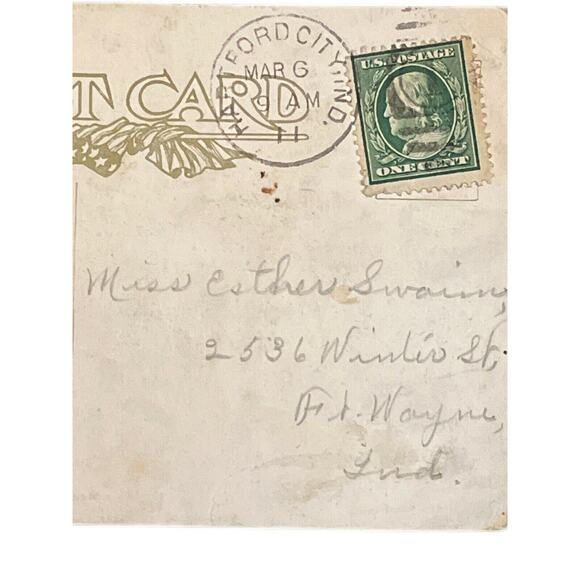 HARTFORD CITY, IND.
MAR 6
9 AM
11
U.S. POSTAGE
ONE CENT
T CARD
Miss Esther Swaim,
2536 Winter St,
Ft. Wayne,
Ind.